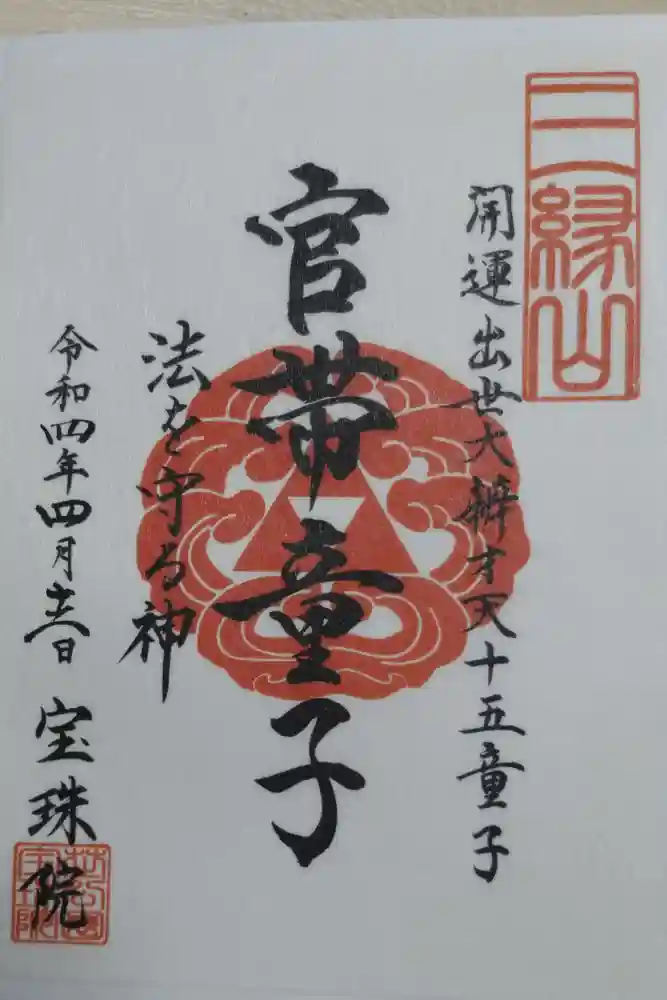 三縁山
開運出世大辨才天十五童子
官帯童子
法を守る神
令和四年四月 日 宝珠院